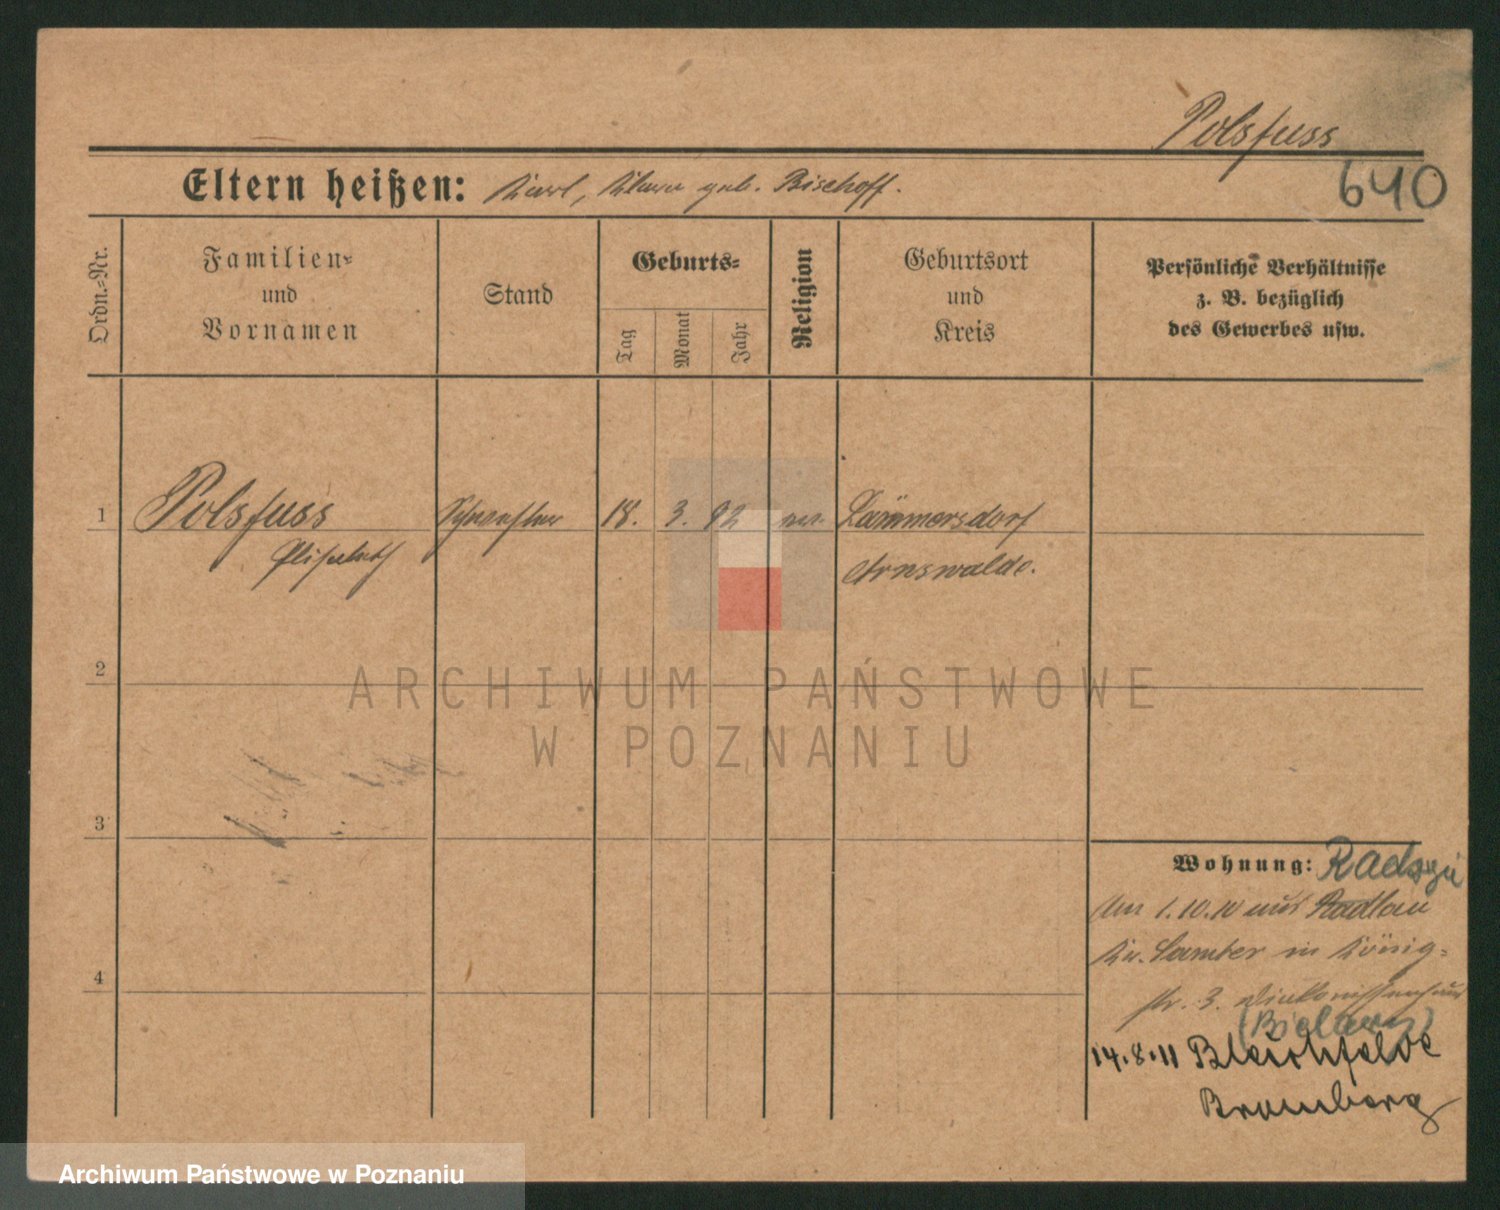 Polsfuss
640
Eltern heißen: Karl, Klara geb. Bischoff.
Ordn.-Nr.
Familien- und Vornamen
Stand
Geburts-
Tag
Monat
Jahr
Religion
Geburtsort und Kreis
Persönliche Verhältnisse
z. B. bezüglich
des Gewerbes usw.
1 Polsfuss Schwester 18. 3. 92 ev. Lämmersdorf
Elisabeth Arnswalde.
2
ARCHIWUM PAŃSTWOWE
W POZNANIU
3
Wohnung:
Am 1.10.10 aus Radlau
Kr. Samter in König-
str. 3. Diakonissenhaus
14.8.11 Bleichfelde
Bromberg
4
Archiwum Państwowe w Poznaniu